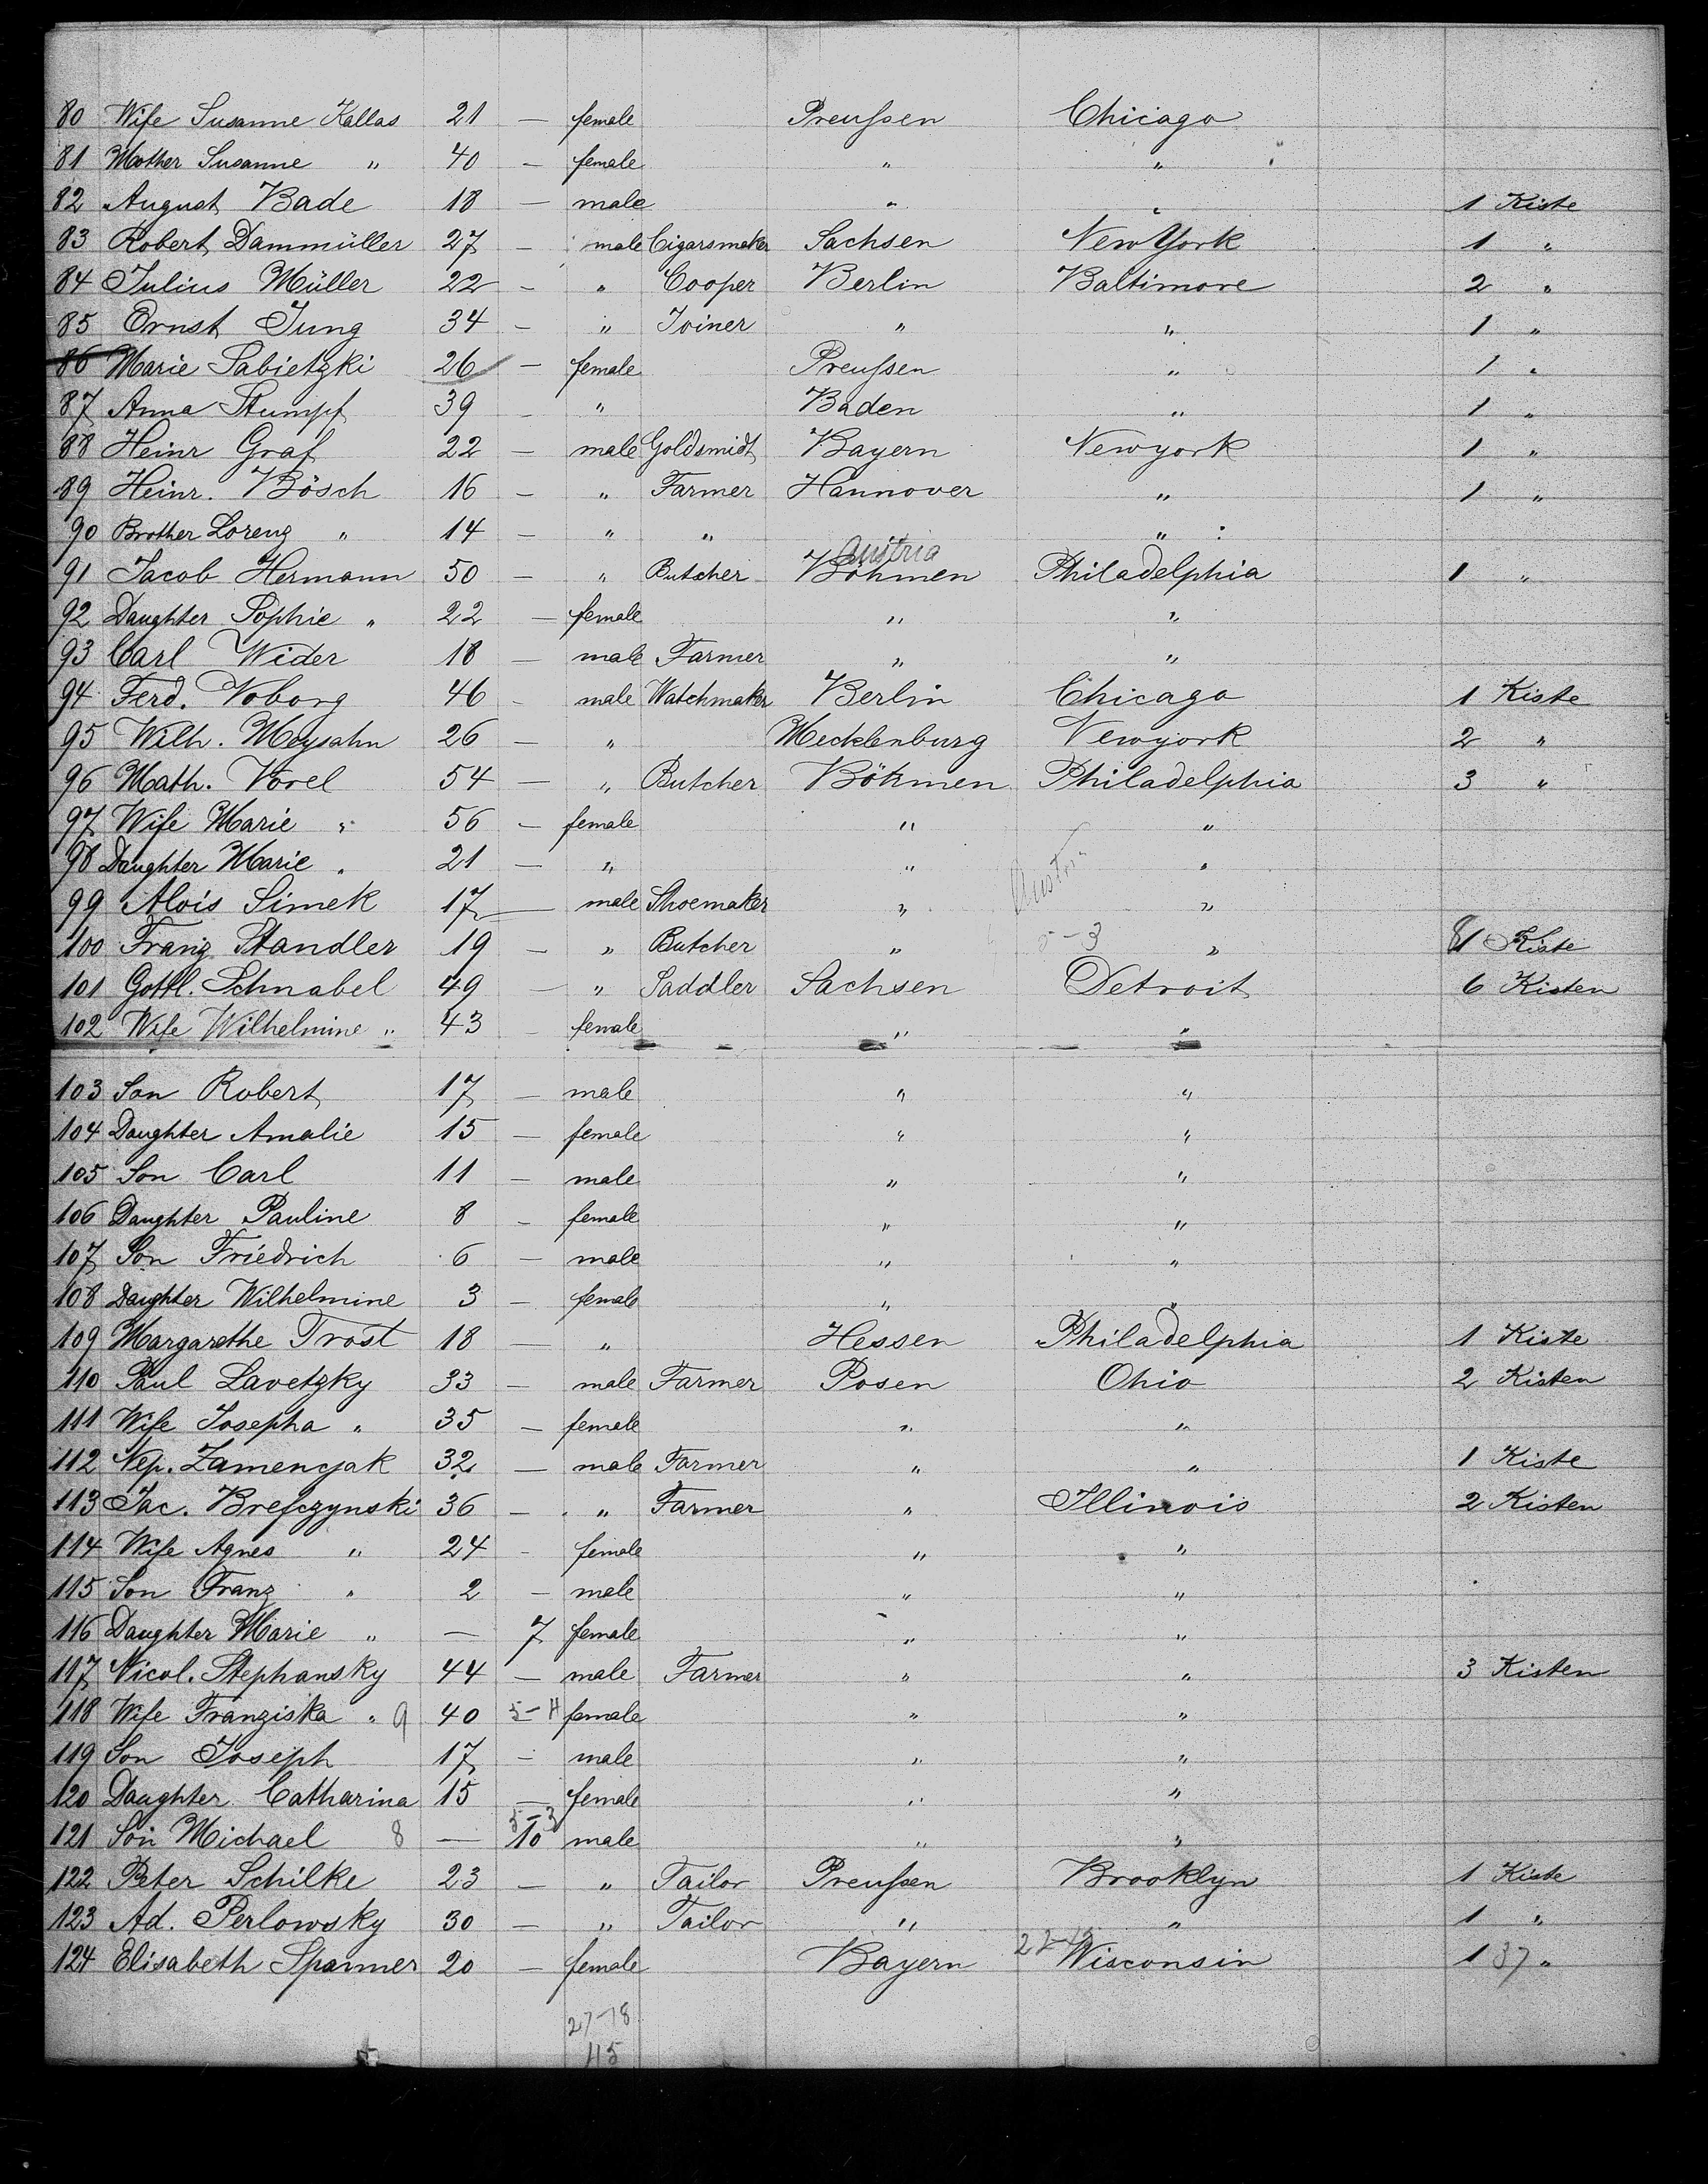 80 Wife Susanne Kallas 21 — female Preußen Chicago
81 Mother Susanne " 40 — female " "
82 August Bade 18 — male " " 1 Kiste
83 Robert Dammüller 27 — male Cigarsmaker Sachsen New York 1 "
84 Julius Müller 22 — " Cooper Berlin Baltimore 2 "
85 Ernst Jung 34 — " Joiner " " 1 "
86 Marie Sabietzki 26 — female Preußen " 1 "
87 Anna Stumpf 39 — " Baden " 1 "
88 Heinr Graf 22 — male Goldsmidt Bayern Newyork 1 "
89 Heinr. Bösch 16 — " Farmer Hannover " 1 "
90 Brother Lorenz " 14 — " " "
Austria
91 Jacob Hermann 50 — " Butcher Böhmen Philadelphia 1 "
92 Daughter Sophie " 22 — female " "
93 Carl Wider 18 — male Farmer " "
94 Ferd. Voborg 46 — male Watchmaker Berlin Chicago 1 Kiste
95 Wilh. Meysahn 26 — " Mecklenburg Newyork 2 "
96 Math. Vorel 54 — " Butcher Böhmen Philadelphia 3 "
97 Wife Marie " 56 — female " "
98 Daughter Marie " 21 — " " "
Austria
99 Alois Simek 17 — male Shoemaker " "
100 Franz Standler 19 — " Butcher " 5-3 " 81 Kiste
101 Gottl. Schnabel 49 — " Saddler Sachsen Detroit 6 Kisten
102 Wife Wilhelmine " 43 — female " "
103 Son Robert 17 — male " "
104 Daughter Amalie 15 — female " "
105 Son Carl 11 — male " "
106 Daughter Pauline 8 — female " "
107 Son Friedrich 6 — male " "
108 Daughter Wilhelmine 3 — female " "
109 Margarethe Trost 18 — " Hessen Philadelphia 1 Kiste
110 Paul Lavetzky 33 — male Farmer Posen Ohio 2 Kisten
111 Wife Josepha " 35 — female " "
112 Nep. Zamencyak 32 — male Farmer " " 1 Kiste
113 Jac. Brefczynski 36 — " Farmer " Illinois 2 Kisten
114 Wife Agnes " 24 — female " "
115 Son Franz " 2 — male " "
116 Daughter Marie " — 7 female " "
117 Nicol. Stephansky 44 — male Farmer " " 3 Kisten
118 Wife Franziska " 9 40 5-H female " "
119 Son Joseph 17 — male " "
120 Daughter Catharina 15 — female " "
5-3
121 Son Michael 8 — 10 male " "
122 Peter Schilke 23 — " Tailor Preußen Brooklyn 1 Kiste
123 Ad. Perlowsky 30 — " Tailor " " 1 "
124 Elisabeth Sparmer 20 — female Bayern Wisconsin 1 37 "
27-18
115